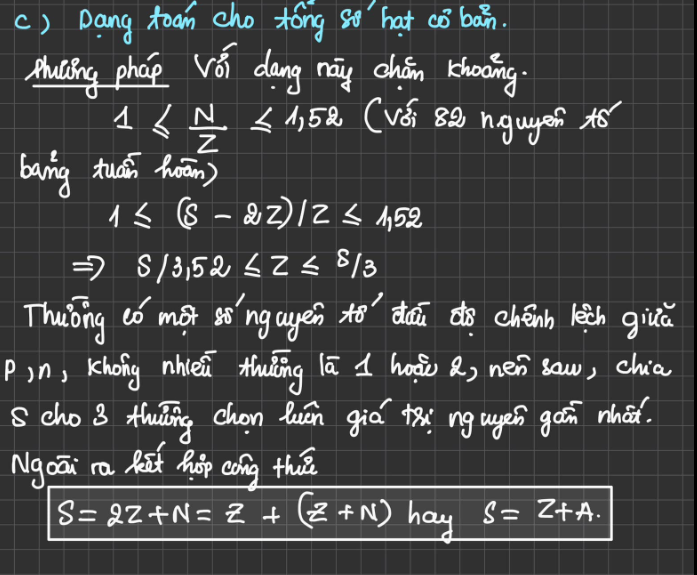 c) Dạng toán cho tổng số hạt cơ bản.
Phương pháp Với dạng này chặn khoảng.
1 ≤ N/Z ≤ 1,52 (Với 82 nguyên tố
bảng tuần hoàn)
1 ≤ (S - 2Z)/Z ≤ 1,52
⇒ S/3,52 ≤ Z ≤ S/3
Thường có một số nguyên tố đầu độ chênh lệch giữa
p,n, không nhiều thường là 1 hoặc 2, nên saw, chia
S cho 3 thường chọn luôn giá trị nguyên gần nhất.
Ngoài ra kết hợp công thức
S = 2Z+N = Z + (Z + N) hay S = Z+A.